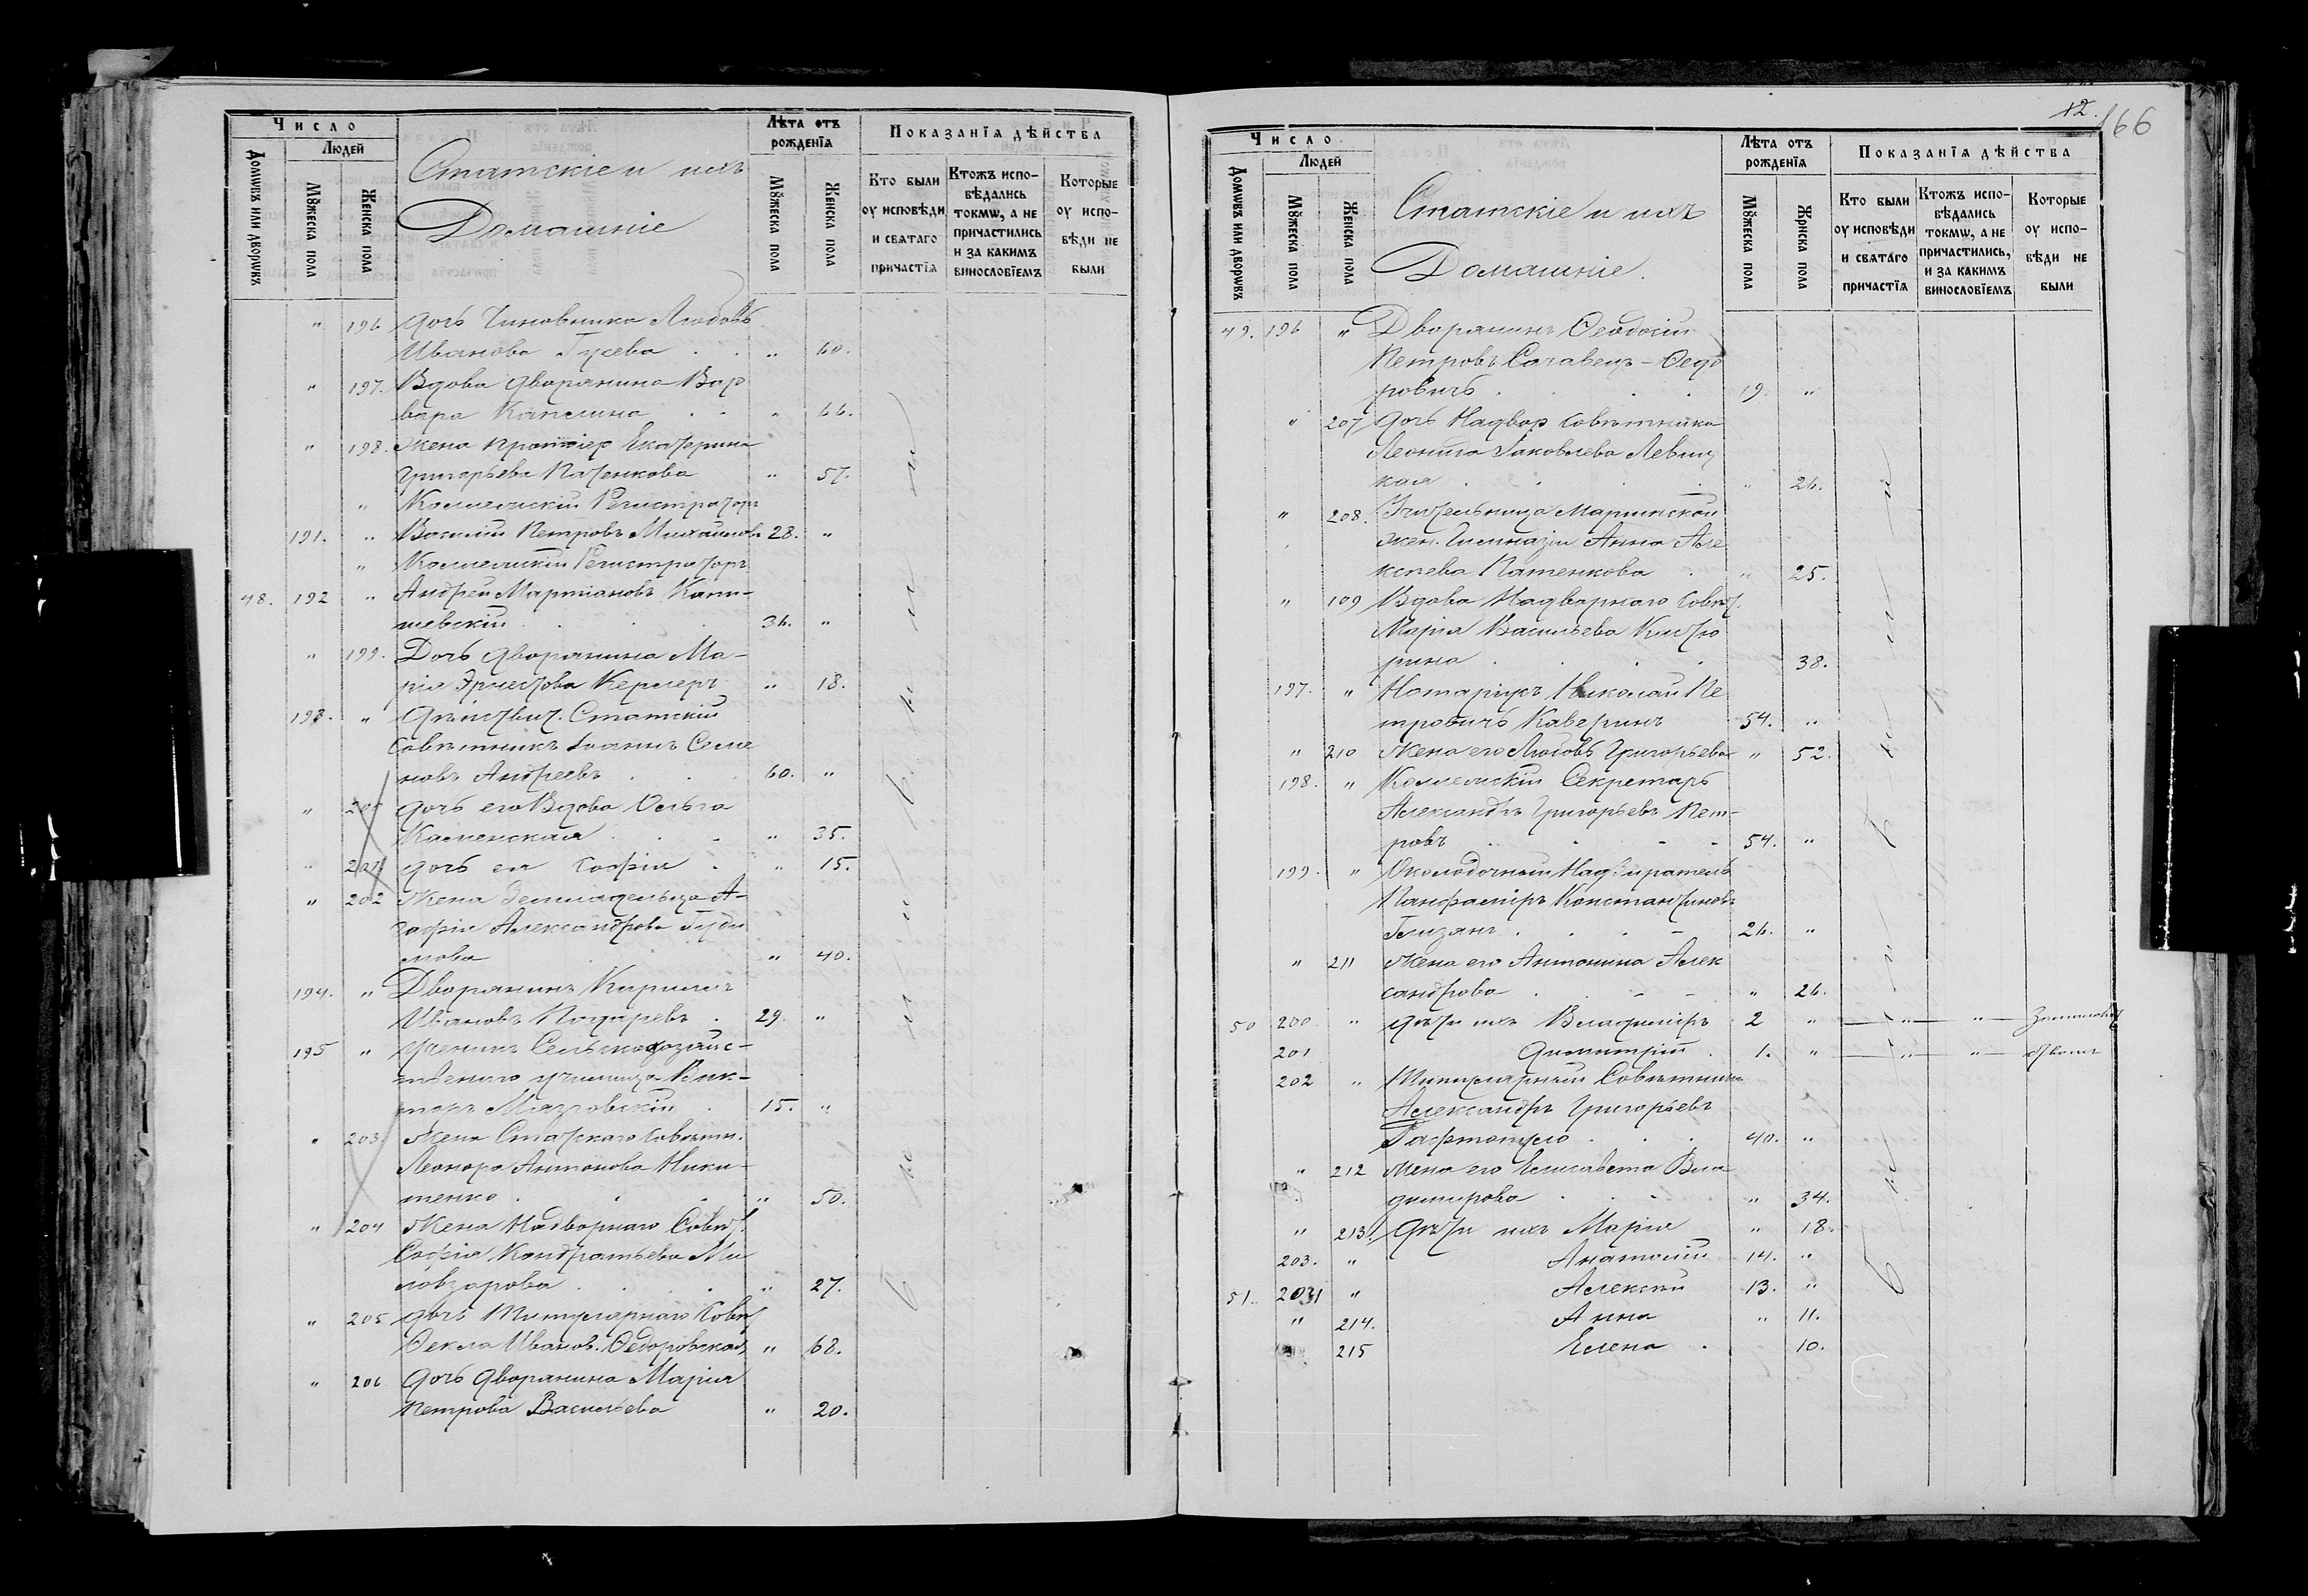 Число
Людей
Домѡвъ или дворѡвъ
Мꙋжеска пола
Женска пола
Статскіе и ихъ
Домашніе
Лѣта отъ
рожденїѧ
Мꙋжеска пола
Женска пола
Показанїѧ дѣйства
Кто были
оу исповѣди
и свѧтаго
причастїѧ
Ктожъ испо-
вѣдались
токмѡ, а не
причастились
и за какимъ
винословїемъ
Которые
оу испо-
вѣди не
были
" 196 дочь Чиновника Любовь
Иванова Гусева . . " 60.
" 197. Вдова дворянина Вар
вара Капелина . . " 66.
" 198. Жена Екатерина
Григорьева Патенкова " 57.
" Коллежскій Регистраторъ
191. " Василій Петровъ Михайловъ 28. "
" Коллежскій Регистраторъ
48. 192 " Андрей Мартіановъ
шевскій . . 36. "
" 199. Дочь дворянина Ма-
рія Эрнестова Керлеръ " 18.
193. " Дѣйствит. Статскій
Совѣтникъ Іоаннъ Семе
новъ Андреевъ . . . 60. "
" дочь его Вдова Ольга
Каменская . . . " 35.
" 201 дочь ея Софія . " 15.
" 202 Жена Землевладельца А-
гафія Александрова
мова " 40.
194. " Дворянинъ Кириллъ
Ивановъ . 29. "
195 " Ученикъ Сельскохозяйс-
твеннаго училища Вик-
торъ . 15. "
" 203. Жена Статскаго Совѣтн.
Леонора Антонова Ники-
тенко . . . " 50.
" 204 Жена Надворнаго Совѣт.
Софія Кондратьева Ми
ловзорова . . . " 27.
" 205 дочь Титулярнаго Совѣт
Ѳекла Иванов. Ѳедоровская " 68.
" 206 Дочь дворянина Марія
Петрова Васильева " 20.
12.
166
Число
Людей
Домѡвъ или дворѡвъ
Мꙋжеска пола
Женска пола
Статскіе и ихъ
Домашніе.
Лѣта отъ
рожденїѧ
Мꙋжеска пола
Женска пола
Показанїѧ дѣйства
Кто были
оу исповѣди
и свѧтаго
причастїѧ
Ктожъ испо-
вѣдались
токмѡ, а не
причастились,
и за какимъ
винословїемъ
Которые
оу испо-
вѣди не
были
49. 196 " Дворянинъ Ѳеодосій
Петровъ - Ѳедо
ровичъ . . . 19. "
" 207 дочь Надвор Совѣтника
Леонила Іаковлева Левиц
кая . . . . " 26.
" 208. Учительница Маріинской
жен. Гимназіи Анна Але
ксѣева Патенкова . " 25.
" 109 Вдова Надворнаго Совѣт.
Марія Васильева
рина . . . . 38.
197. " Нотаріусъ Николай Пе
тровичъ Каверинъ 54. "
" 210 Жена его Любовь Григорьева " 52.
198. " Коллежскій Секретарь
Александръ Григорьевъ Пет-
ровъ . . - - 54. "
199. " Околодочный Надзиратель
Константиновъ
. . . - 26. "
" 211 Жена его Антонина Алек
сандрова . . - - " 26.
50 200. " дѣти ихъ Владиміръ 2 " — " — " — За малолѣт
201 Димитрій . 1. " — " — " — ством
202 " Титулярный Совѣтникъ
Александръ Григорьевъ
. . . 40. "
" 212 Жена его Елисавета Вла
димирова . . . . " 34.
" 213. Дѣти ихъ Марія " 18.
203. " Анатолій 14. "
51. " Алексѣй 13. "
" 214. Анна " 11.
215 Елена . 10.